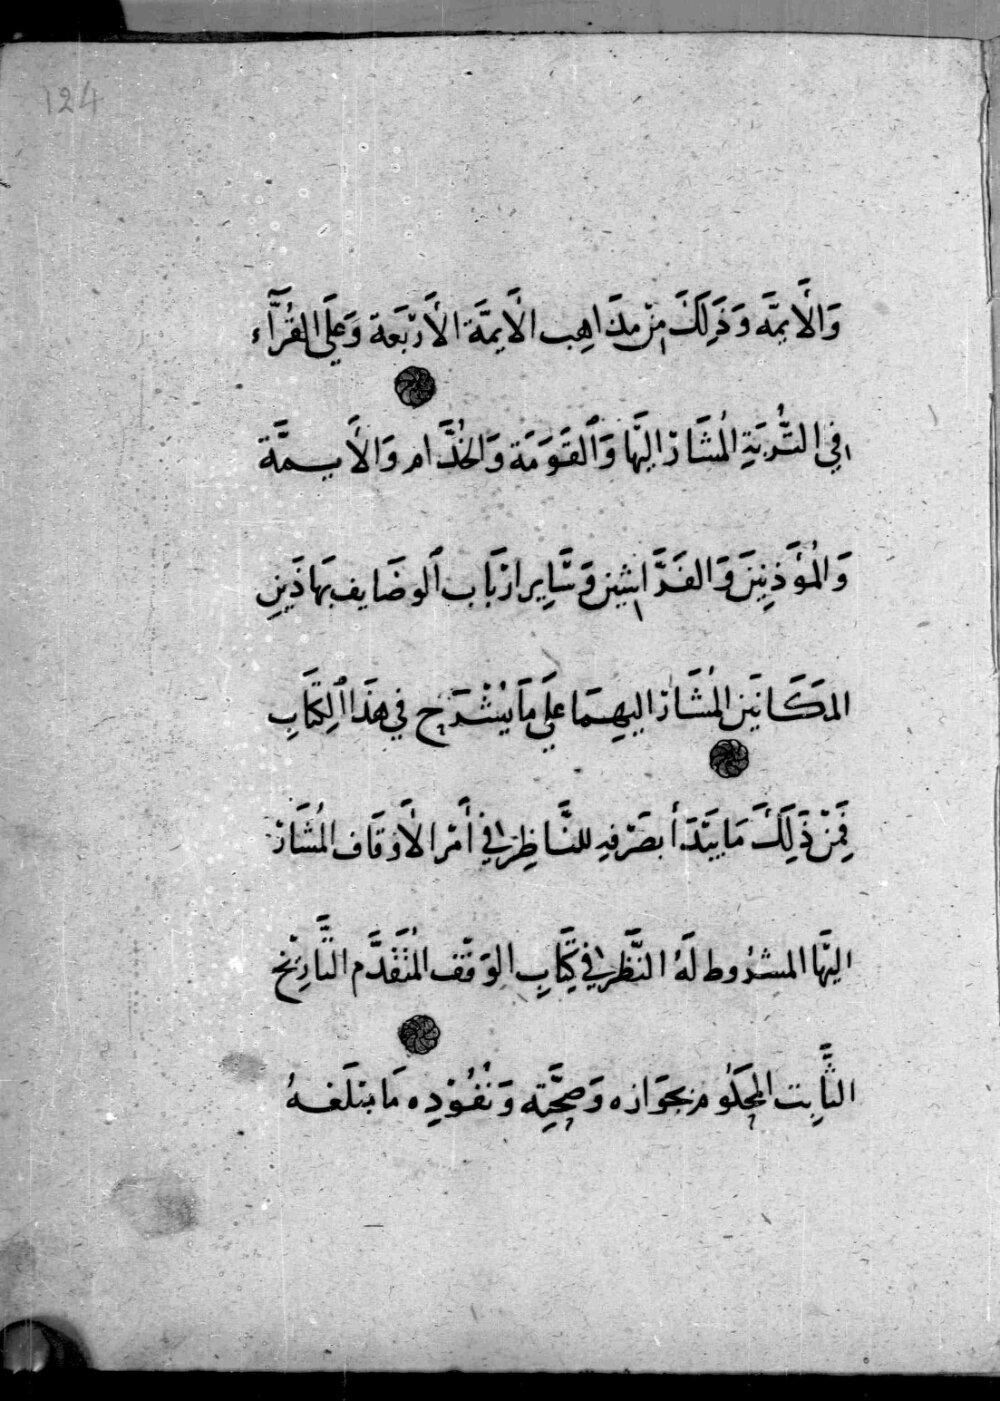 124
وَالْأَيِمَّه وَذَلِكَ مِنْ مذَاهِب الْأَيِمَّة الْأَرْبَعَة وَعَلَى القُرَّآء
فِي التُّربَةِ المُشَارْ اليَّهَا وَٱلقَوَمَة وَالخُدَّام وَالْأَيِمَّة
وَالمُؤَذِنِينَ وَالفَرَّاشِين وَسَّايِر ارْبَاب ٱلوضَايف بهَاذَينِ
المَكَانَيَن المُشَارْ اليهِمَا عَلَي مَا يُشْرَح فِي هَذَا اْلكِتَابِ
فَمِنْ ذَلِكَ مَا يَبْدَأ بصَرْفِهِ للنَّاظِر فِي أَمْر الْأَوقَاف المُشَارْ
اليَّهَا المشرُوط لَهُ النَّظَر فِي كِتَابِ الوَقْف المُتَقَدَّم التَّارِيْخ
الثَّابِت المحكُوم بجَوَازه وَصِحَّتِه وَنُفُوْذِه مَا مبْلَغهُ